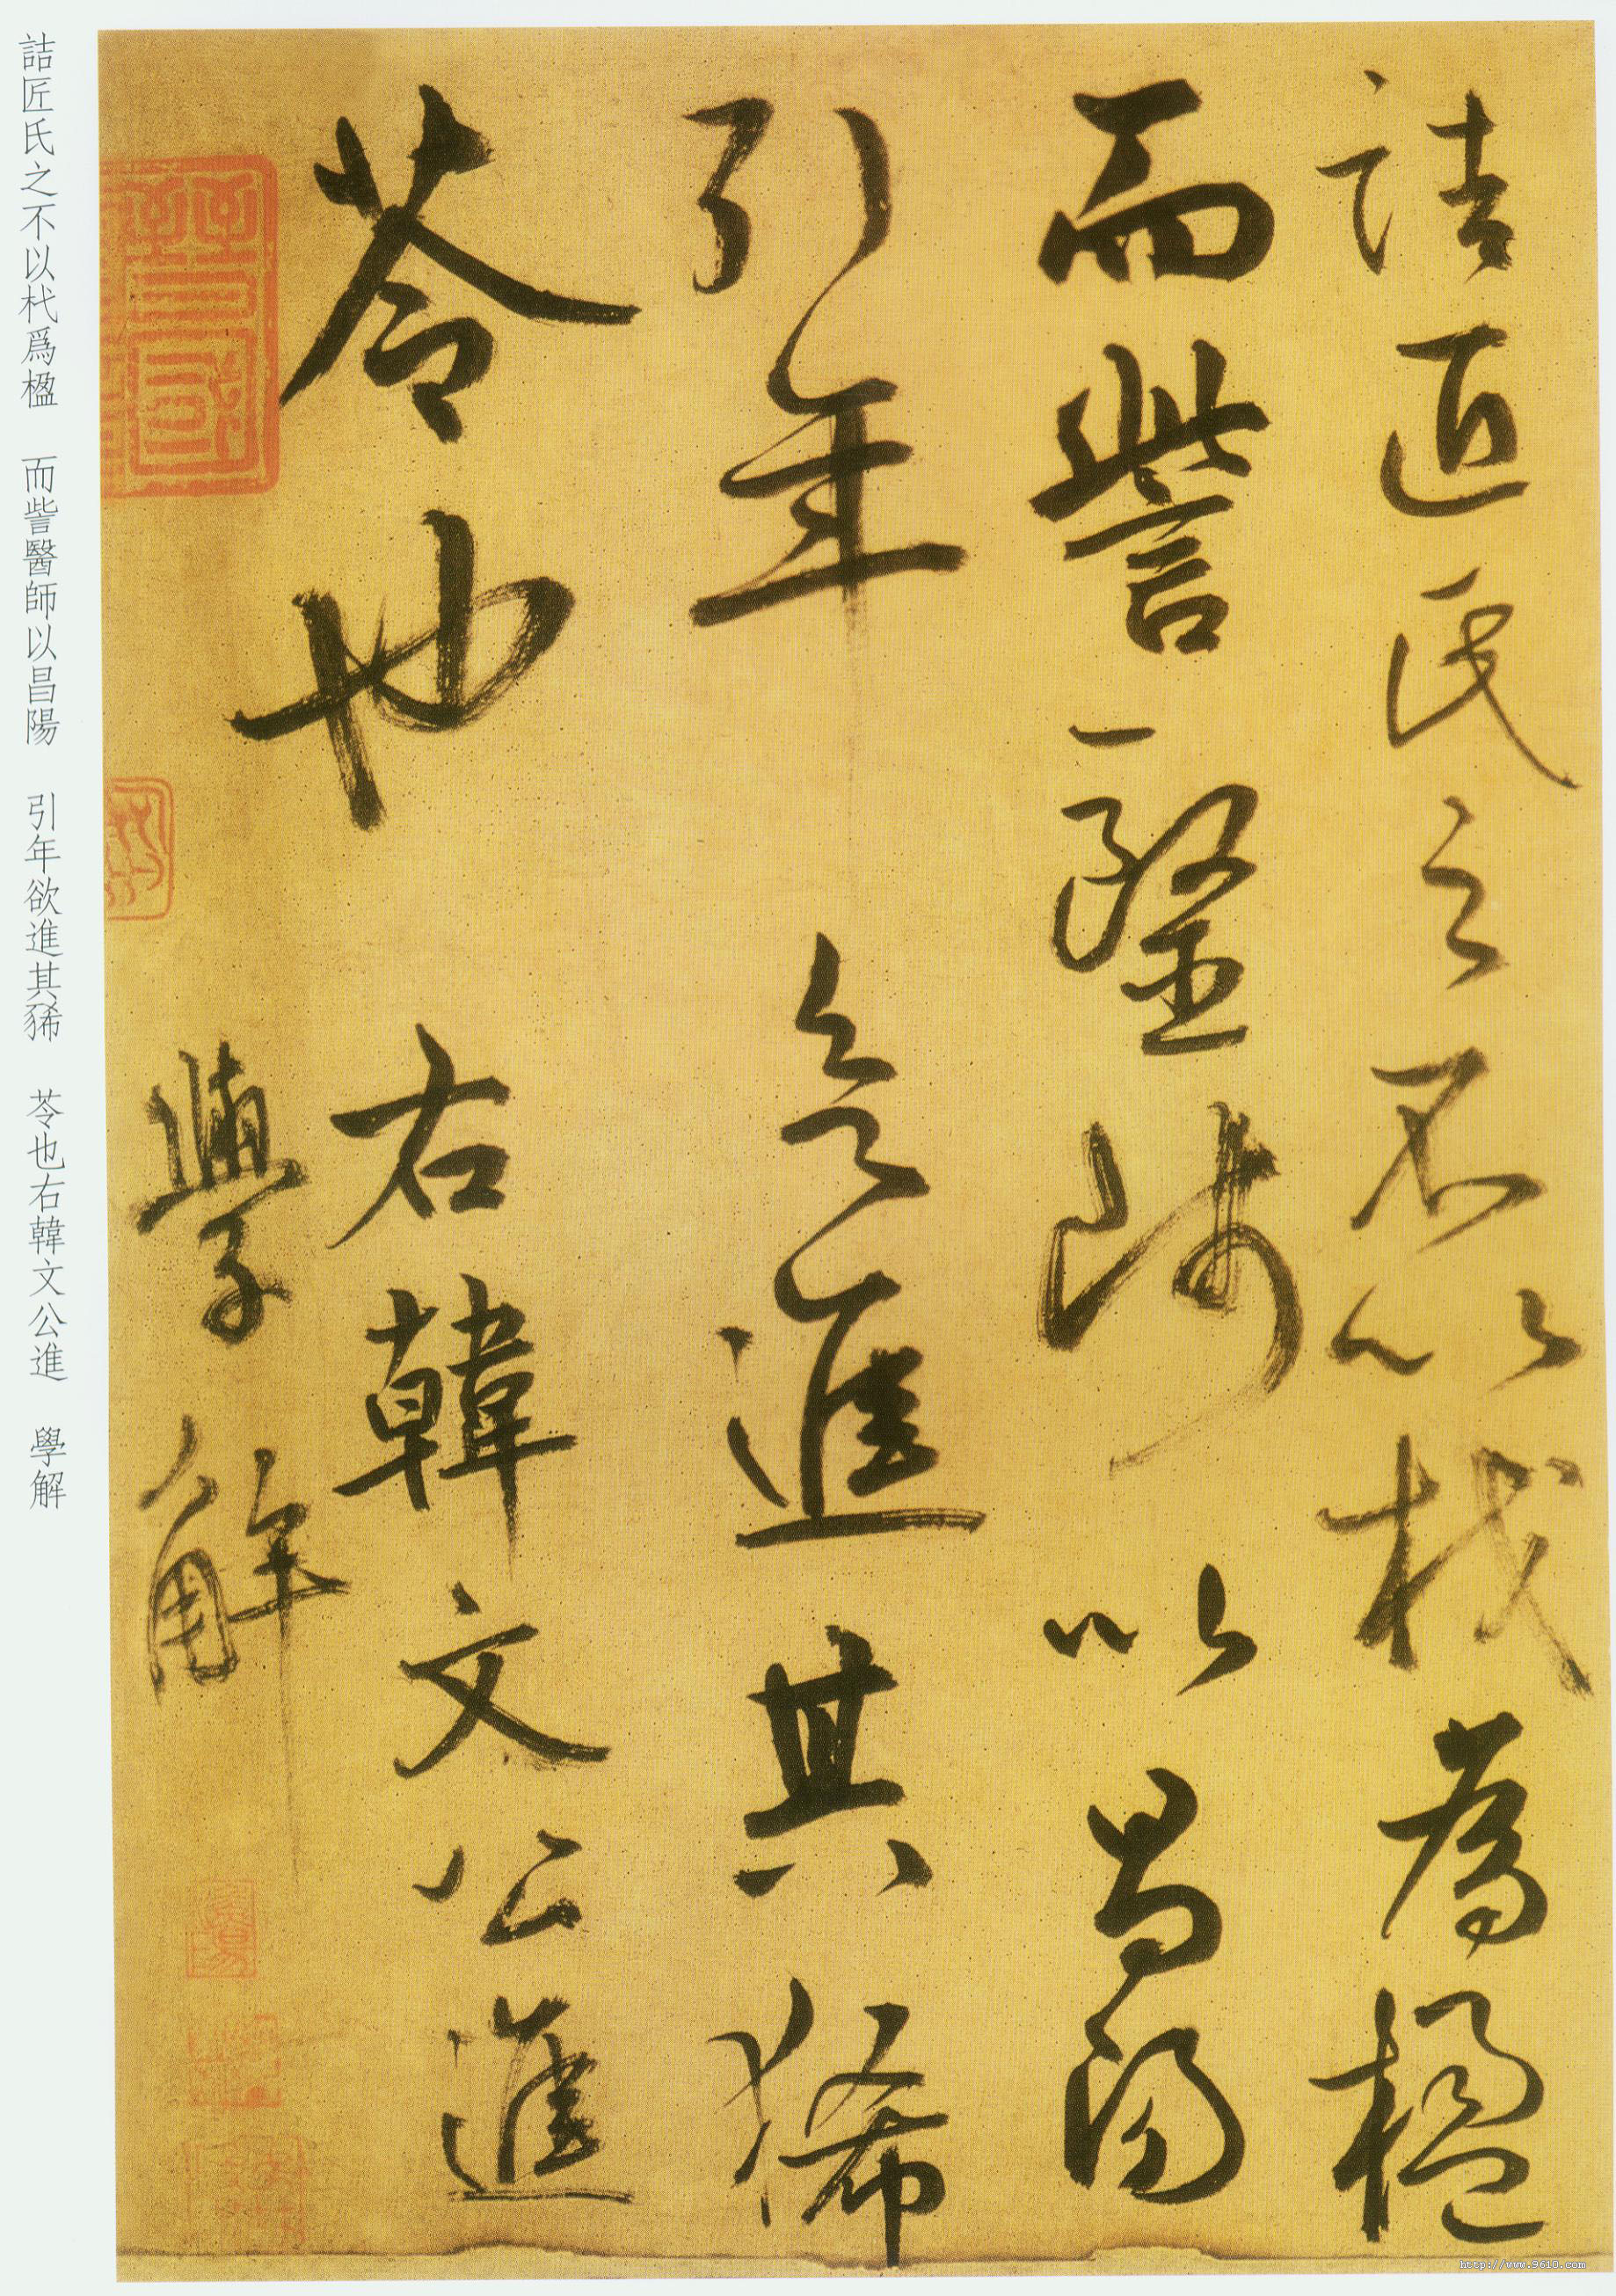 詰匠氏之不以杙爲楹
而訾醫師以昌陽
引年欲進其豨
苓也 右韓文公進
學解
詰匠氏之不以杙爲楹 而訾醫師以昌陽 引年欲進其豨 苓也右韓文公進 學解
http://www.9610.com